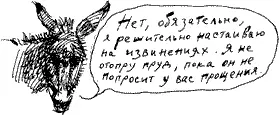 Нет, обязательно,
я решительно настаиваю
на извинениях. Я не
отопру пруд, пока он не
попросит у вас прощения.